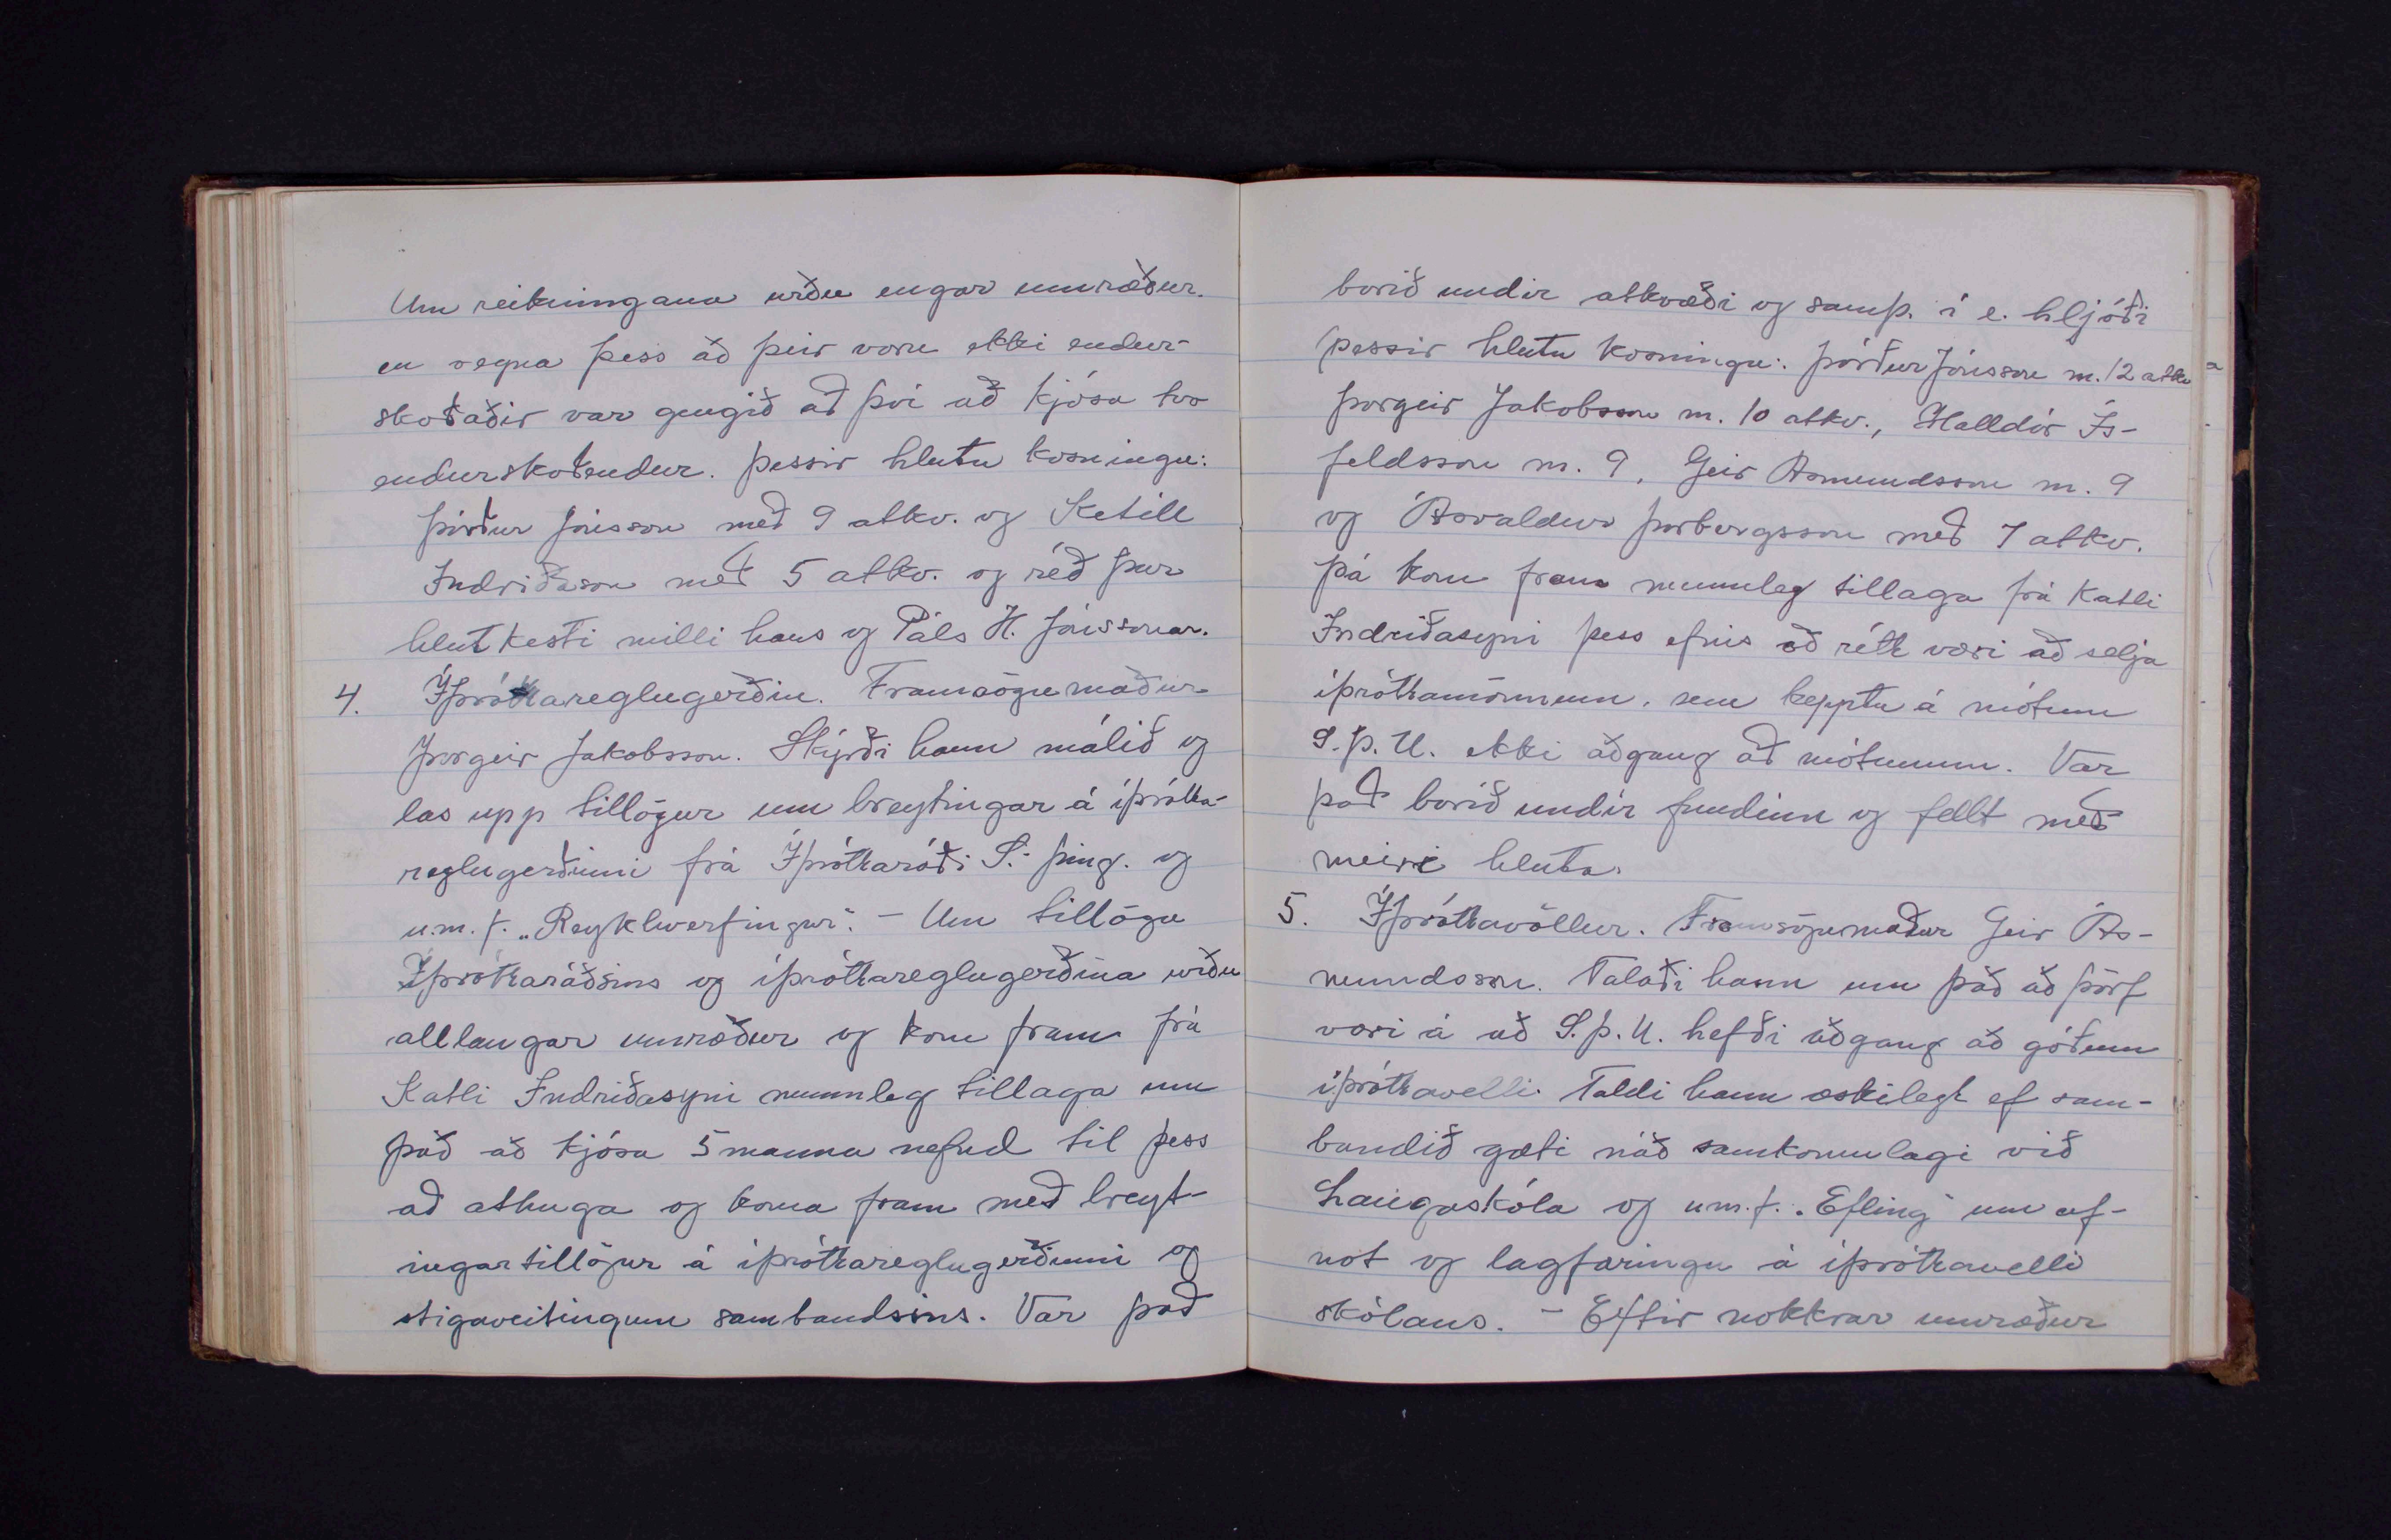 Um reikningana urðu engar umræður.
en vegna þess að þeir voru ekki endur-
skoðaðir var gengið að því að kjósa tvo
endurskoðendur. Þessir hlutu kosningu:
Þórður Jónsson með 9 atkv. og Ketill
Indriðason með 5 atkv. og réð þar
hlutkesti milli hans og Páls H. Jónssonar.
4. Íþróttareglugerðin. Framsögumaður
Þorgeir Jakobsson. Skýrði hann málið og
las upp tillögur um breytingar á íþrótta-
reglugerðinni frá Íþróttaráði S.-Þing. og
u.m.f. „Reykhverfingur". - Um tillögu
Íþróttaráðsins og íþróttareglugerðina urðu
alllangar umræður og kom fram frá
Katli Indriðasyni munnleg tillaga um
það að kjósa 5 manna nefnd til þess
að athuga og koma fram með breyt-
ingartillögur á íþróttareglugerðinni og
stigaveitingum sambandsins. Var það
borið undir atkvæði og samþ. í e. hljóði
Þessir hlutu kosningu: Þórður Jónsson m. 12 atkv
Þorgeir Jakobsson m. 10 atkv., Halldór Ís-
feldsson m. 9, Geir Ásmundsson m. 9
og Ásvaldur Þorbergsson með 7 atkv.
Þá kom fram munnleg tillaga frá Katli
Indriðasyni þess efnis að rétt væri að selja
íþróttamönnum, sem kepptu á mótum
S.Þ.U. ekki aðgang að mótunum. Var
það borið undir fundinn og fellt með
meiri hluta.
5. Íþróttavöllur. Framsögumaður Geir Ás-
mundsson. Talaði hann um það að þörf
væri á að S.Þ.U. hefði aðgang að góðum
íþróttavelli. Taldi hann æskilegt ef sam-
bandið gæti náð samkomulagi við
Laugaskóla og u.m.f. „Efling" um af-
not og lagfæringu á íþróttavelli
skólans. - Eftir nokkrar umræður